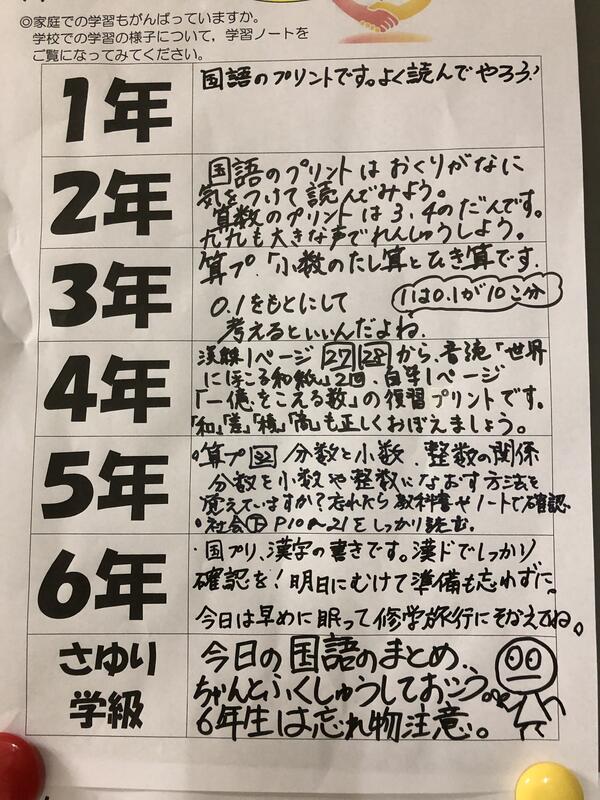 ◎家庭での学習もがんばっていますか。
学校での学習の様子について，学習ノートを
ご覧になってみてください。
1年
国語のプリントです。よく読んでやろう！
2年
国語のプリントはおくりがなに
気をつけて読んでみよう。
算数のプリントは3、4のだんです。
九九も大きな声でれんしゅうしよう。
3年
算プ「小数のたし算とひき算です．
0.1をもとにして
1は0.1が10こ分
考えるといいんだよね．
4年
漢練1ページ 27 28 から、音読「世界
にほこる和紙」2回、自学1ページ
「一億をこえる数」の復習プリントです。
「和」「差」「積」「商」も正しくおぼえましょう。
5年
算プ 32 分数と小数、整数の関係
分数を小数や整数になおす方法を
覚えていますか？忘れたら教科書やノートで確認
社会下P10〜21をしっかり読む。
6年
・国プリ、漢字の書きです。漢ドでしっかり
確認を！明日にむけて準備も忘れずに〜
今日は早めに眠って修学旅行にそなえてね。
さゆり
学級
今日の国語のまとめ、
ちゃんとふくしゅうしておこう。
6年生は忘れ物注意。